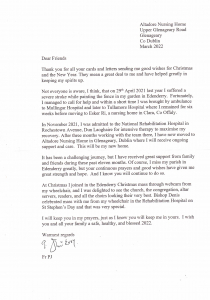 Altadore Nursing Home
Upper Glenageary Road
Glenageary
Co Dublin
March 2022
Dear Friends
Thank you for all your cards and letters sending me good wishes for Christmas
and the New Year. They mean a great deal to me and have helped greatly in
keeping my spirits up.
Not everyone is aware, I think, that on 29th April 2021 last year I suffered a
severe stroke while painting the fence in my garden in Edenderry. Fortunately,
I managed to call for help and within a short time I was brought by ambulance
to Mullingar Hospital and later to Tallaght Hospital where I remained for six
weeks before moving to Esker Rí, a nursing home in Clara, Co Offaly.
In November 2021, I was admitted to the National Rehabilitation Hospital in
Rochestown Avenue, Dun Laoghaire for intensive therapy to maximise my
recovery. After three months working with the team there, I have now moved to
Altadore Nursing Home in Glenageary, Co Dublin where I will receive ongoing
support and care. This will be my new home.
It has been a challenging journey, but I have received great support from family
and friends during these past eleven months. Of course, I miss my parish in
Edenderry greatly, but your continuous prayers and good wishes have given me
great strength and hope. And I know you will continue to do so.
At Christmas I joined in the Edenderry Christmas mass through webcam from
my wheelchair, and I was delighted to see the church, the congregation, altar
servers, readers, and all the choirs looking their very best. Bishop Denis
celebrated mass with me from my wheelchair in the Rehabilitation Hospital on
St Stephen's Day and that was very special.
I will keep you in my prayers, just as I know you will keep me in yours. I wish
you and all your family a safe, healthy, and blessed 2022.
Warmest regards
Fr PJ